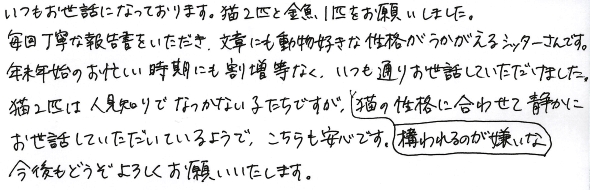 いつもお世話になっております。猫2匹と金魚1匹をお願いしました。
毎回丁寧な報告書をいただき、文章にも動物好きな性格がうかがえるシッターさんです。
年末年始のお忙しい時期にも割増等なく、いつも通りお世話していただけました。
猫2匹は人見知りでなつかない子たちですが、猫の性格に合わせて静かに
お世話していただいているようで、こちらも安心です。構われるのが嫌いな
今後もどうぞよろしくお願いいたします。